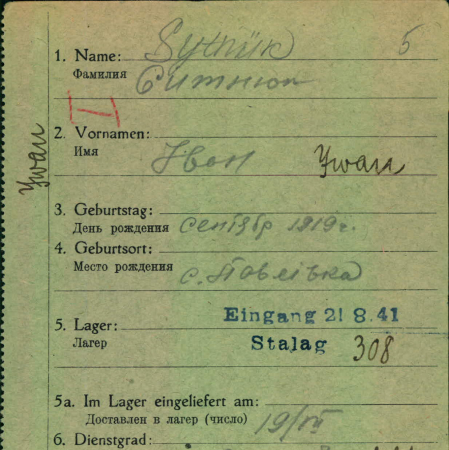 5
1. Name: Sytnük
Фамилия Ситнюк
2. Vornamen:
Имя Iван Ywan
Ywan
3. Geburtstag:
День рождения сентябр 1919 г.
4. Geburtsort:
Место рождения с. Павлівка
5. Lager: Eingang 21 8.41
Лагер Stalag 308
5a. Im Lager eingeliefert am:
Доставлен в лагер (число) 19/VII
6. Dienstgrad: